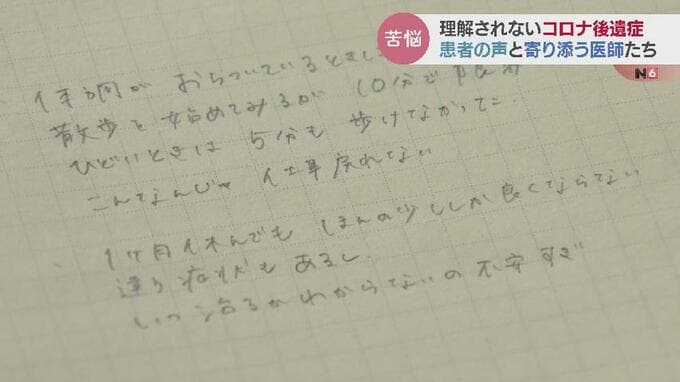 苦悩
理解されないコロナ後遺症
患者の声と寄り添う医師たち
N6
体調が おちついているときに
散歩を始めてみるが 10分で
ひどいときは 5分も 歩けなかった
こんなんじゃ 仕事戻れない
1ヶ月休んでも ほんの少ししか良くならない
違う症状もあるし
いつ治るかわからないの不安すぎ